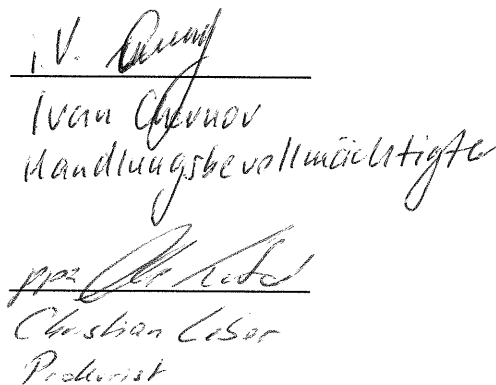 i.V.
Ivan Chernov
Handlungsbevollmächtigter
ppa
Christian
Prokurist